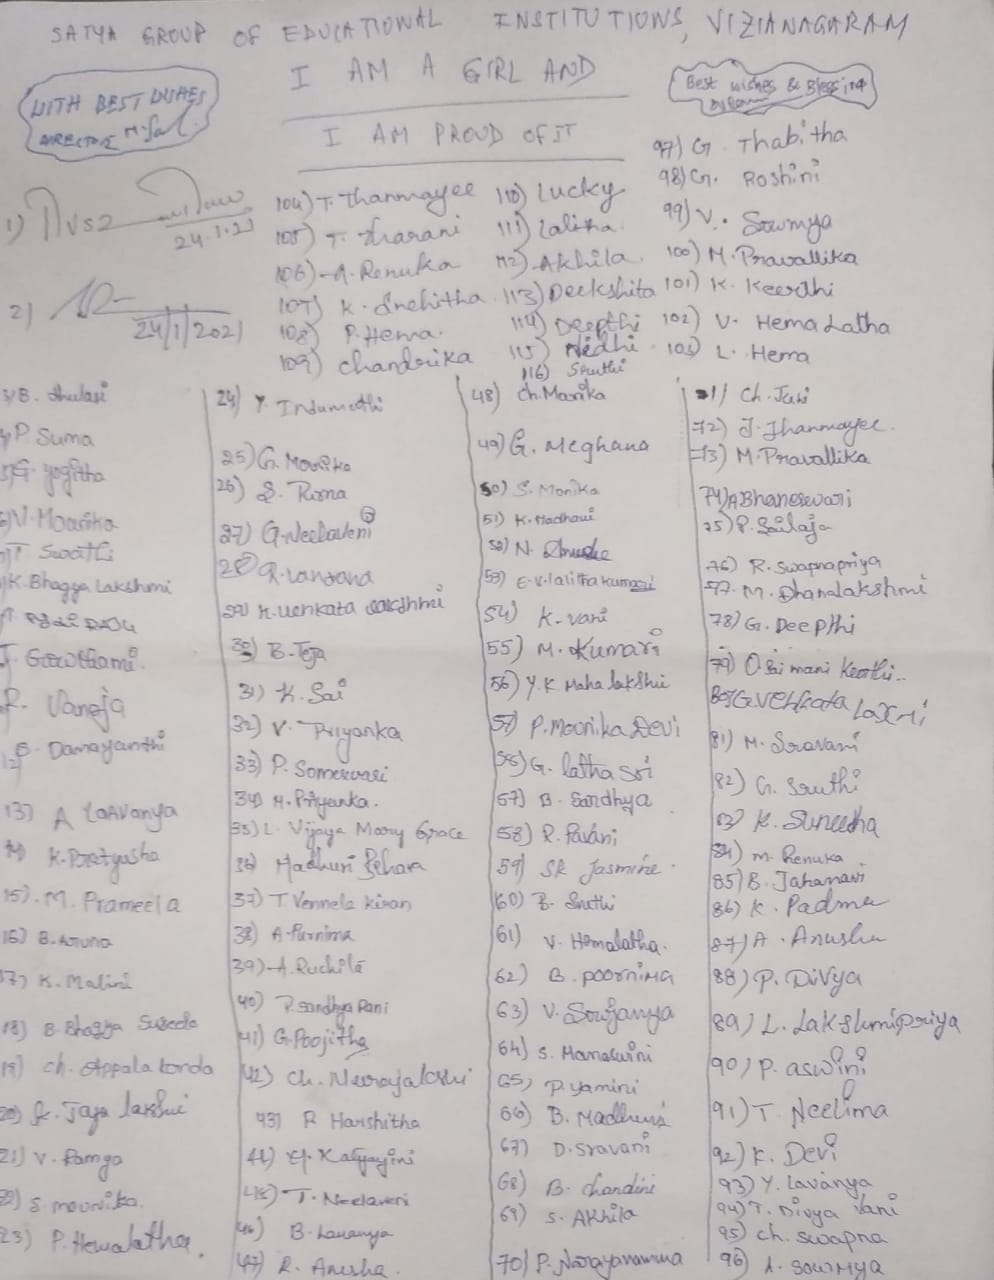 SATYA GROUP OF EDUCATIONAL INSTITUTIONS, VIZIANAGARAM
I AM A GIRL AND
I AM PROUD OF IT
WITH BEST WISHES
DIRECTOR
Best wishes & Blessing
1)
24.1.21
2)
24/1/2021
104) T. Thanmayee
105) T. Tharani
106) A. Renuka
107) K. Snehitha
108) P. Hema.
109) Chandrika
110) Lucky
111) Lalitha.
112) Akhila.
113) Deekshita
114) Deepthi
115) Nidhi
116) Sruthi
97) G. Thabitha
98) G. Roshini
99) V. Sowmya
100) M. Pravallika
101) K. Keerthi
102) V. Hema Latha
103) L. Hema
3) B. Thulasi
P Suma
G. Yogitha
V. Mounika
T Swathi
K. Bhagya Lakshmi
J. Gowthami.
R. Vaneja
12) Damayanthi
13) A Laavanya
14) K. Pratyusha
15). M. Prameela
16) B. Aruna
17) K. Malini
18) B. Bhagya
19) Ch. Appala konda
20) Jaya lakshmi
21) V. Ramya
22) S mounika.
23) P. Hemalatha.
24) Y. Indumathi
25) G. Mounika
26) S. Rama
27) G. Neelaveni
28)
29) K. Venkata Lakshmi
30) B. Teja
31) K. Sai
32) V. Priyanka
33) P. Someswari
34) M. Priyanka.
35) L. Vijaya Mary Grace
36) Madhuri
37) T. Vennela Kiran
38) A Purnima
39) A. Ruchita
40) P. Sandhya Rani
41) G. Poojitha
42) Ch. Neerajakshi
43) P Harshitha
44) Katyayini
45) T. Neelaveni
46) B. Lavanya
47) R. Anusha.
48) Ch. Mounika
49) G. Meghana
50) S. Monika
51) K. Madhavi
52) N.
53) E. V. lalitha kumari
54) K. vani
55) M. Kumari
56) Y. K. Maha lakshmi
57) P. Mounika Devi
58) G. latha sri
57) B. Sandhya
58) R. Pavani
59) SK Jasmine.
60) B. Sruthi
61) V. Hemalatha.
62) B. Poornima
63) V. Sowjanya
64) S. Manaswini
65) P. yamini
66) B. Madhuri
67) D. Sravani
68) B. chandini
69) S. Akhila
70) P. Narayanamma
71) Ch.
72) J. Jhanmayee.
73) M. Pravallika
74) A Bhaneswari
75) P. Sailaja
76) R. Swapnapriya
77. M. Dhanalakshmi
78) G. Deepthi
79) O Sai mani Keerthi..
80) G. Venkata Laxmi
81) M. Sravani
82) G. Sruthi
83) K. Suneetha
84) M. Renuka
85) B. Jahanavi
86) K. Padma
87) A. Anusha
88) P. Divya
89) L. Lakshmipriya
90) P. aswini
91) T. Neelima
92) K. Devi
93) Y. Lavanya
94) T. Divya Vani
95) Ch. Swapna
96) A. Sowmya